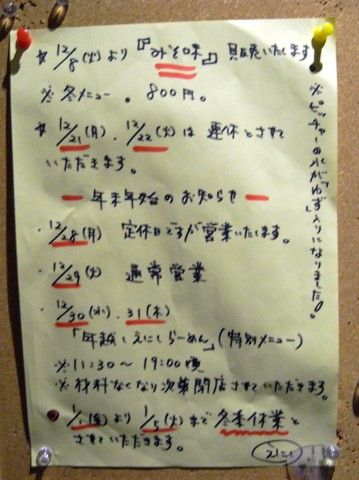 ☆ 12/8(火)より『みそ味』販売いたします
※冬メニュー。800円。
☆ 12/21(月)、12/22(火)は連休とさせて
いただきます。
ー年末年始のお知らせー
・12/28(月) 定休日ですが営業いたします。
・12/29(火) 通常営業
・12/30(水)、31(木)
「年越しえにしらーめん」(特別メニュー)
※11:30〜19:00頃
※材料なくなり次第閉店させていただきます。
1/1(金)より1/5(火)まで冬季休業と
させていただきます。
えにし
※ピッチャーの水が「ゆず」入りになりました!